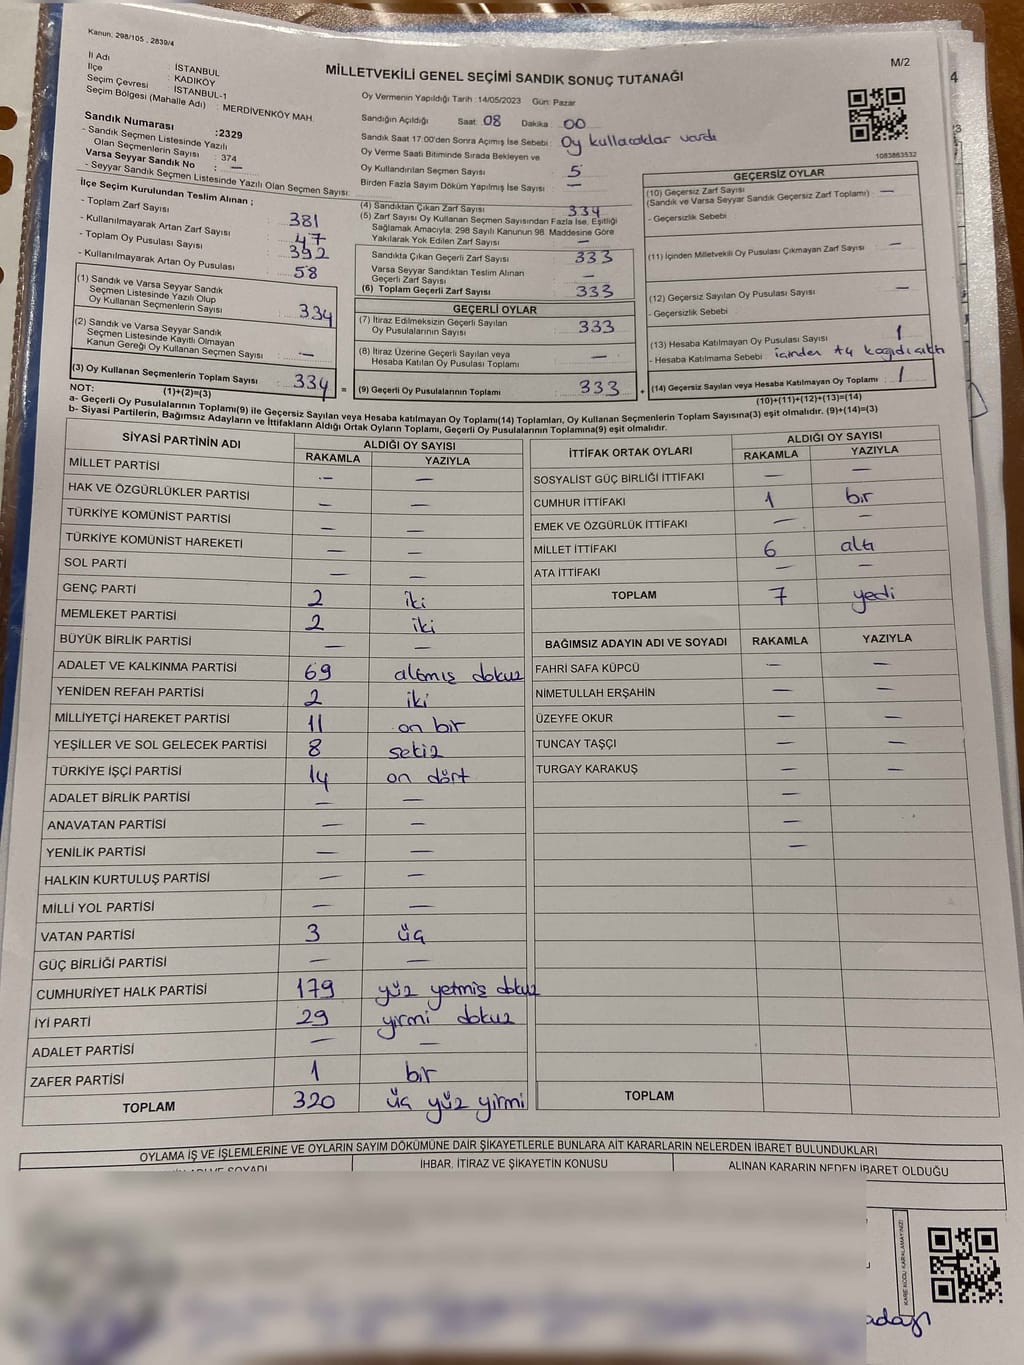 Kanun: 298/105 , 2839/4
M/2
MİLLETVEKİLİ GENEL SEÇİMİ SANDIK SONUÇ TUTANAĞI
İl Adı : İSTANBUL
İlçe : KADIKÖY
Seçim Çevresi : İSTANBUL-1
Seçim Bölgesi (Mahalle Adı) : MERDİVENKÖY MAH.
Sandık Numarası :2329
- Sandık Seçmen Listesinde Yazılı
Olan Seçmenlerin Sayısı : 374
Varsa Seyyar Sandık No : —
- Seyyar Sandık Seçmen Listesinde Yazılı Olan Seçmen Sayısı:
Oy Vermenin Yapıldığı Tarih :14/05/2023 Gün: Pazar
Sandığın Açıldığı Saat: 08 Dakika : 00
Sandık Saat 17:00'den Sonra Açımış İse Sebebi : Oy kullacaklar vardı
Oy Verme Saati Bitiminde Sırada Bekleyen ve
Oy Kullandırılan Seçmen Sayısı : 5
Birden Fazla Sayım Döküm Yapılmış İse Sayısı : —
1083863532
İlçe Seçim Kurulundan Teslim Alınan ;
- Toplam Zarf Sayısı : 381
- Kullanılmayarak Artan Zarf Sayısı : 47
- Toplam Oy Pusulası Sayısı : 392
- Kullanılmayarak Artan Oy Pusulası : 58
(1) Sandık ve Varsa Seyyar Sandık
Seçmen Listesinde Yazılı Olup
Oy Kullanan Seçmenlerin Sayısı : 334
(2) Sandık ve Varsa Seyyar Sandık
Seçmen Listesinde Kayıtlı Olmayan
Kanun Gereği Oy Kullanan Seçmen Sayısı : —
(3) Oy Kullanan Seçmenlerin Toplam Sayısı : 334 =
(1)+(2)=(3)
(4) Sandıktan Çıkan Zarf Sayısı : 334
(5) Zarf Sayısı Oy Kullanan Seçmen Sayısından Fazla İse, Eşitliği
Sağlamak Amacıyla; 298 Sayılı Kanunun 98. Maddesine Göre
Yakılarak Yok Edilen Zarf Sayısı : —
Sandıkta Çıkan Geçerli Zarf Sayısı : 333
Varsa Seyyar Sandıktan Teslim Alınan
Geçerli Zarf Sayısı : —
(6) Toplam Geçerli Zarf Sayısı : 333
GEÇERLİ OYLAR
(7) İtiraz Edilmeksizin Geçerli Sayılan
Oy Pusulalarının Sayısı : 333
(8) İtiraz Üzerine Geçerli Sayılan veya
Hesaba Katılan Oy Pusulası Toplamı : —
(9) Geçerli Oy Pusulalarının Toplamı : 333 +
GEÇERSİZ OYLAR
(10) Geçersiz Zarf Sayısı : —
(Sandık ve Varsa Seyyar Sandık Geçersiz Zarf Toplamı)
- Geçersizlik Sebebi
(11) İçinden Milletvekili Oy Pusulası Çıkmayan Zarf Sayısı : —
(12) Geçersiz Sayılan Oy Pusulası Sayısı : —
- Geçersizlik Sebebi
(13) Hesaba Katılmayan Oy Pusulası Sayısı : 1
- Hesaba Katılmama Sebebi : içinden A4 kağıdı çıktı
(14) Geçersiz Sayılan veya Hesaba Katılmayan Oy Toplamı : 1
(10)+(11)+(12)+(13)=(14)
NOT:
a- Geçerli Oy Pusulalarının Toplamı(9) ile Geçersiz Sayılan veya Hesaba katılmayan Oy Toplamı(14) Toplamları, Oy Kullanan Seçmenlerin Toplam Sayısına(3) eşit olmalıdır. (9)+(14)=(3)
b- Siyasi Partilerin, Bağımsız Adayların ve İttifakların Aldığı Ortak Oyların Toplamı, Geçerli Oy Pusulalarının Toplamına(9) eşit olmalıdır.
SİYASİ PARTİNİN ADI ALDIĞI OY SAYISI
RAKAMLA YAZIYLA
MİLLET PARTİSİ — —
HAK VE ÖZGÜRLÜKLER PARTİSİ — —
TÜRKİYE KOMÜNİST PARTİSİ — —
TÜRKİYE KOMÜNİST HAREKETİ — —
SOL PARTİ — —
GENÇ PARTİ 2 iki
MEMLEKET PARTİSİ 2 iki
BÜYÜK BİRLİK PARTİSİ — —
ADALET VE KALKINMA PARTİSİ 69 altmış dokuz
YENİDEN REFAH PARTİSİ 2 iki
MİLLİYETÇİ HAREKET PARTİSİ 11 on bir
YEŞİLLER VE SOL GELECEK PARTİSİ 8 sekiz
TÜRKİYE İŞÇİ PARTİSİ 14 on dört
ADALET BİRLİK PARTİSİ — —
ANAVATAN PARTİSİ — —
YENİLİK PARTİSİ — —
HALKIN KURTULUŞ PARTİSİ — —
MİLLİ YOL PARTİSİ — —
VATAN PARTİSİ 3 üç
GÜÇ BİRLİĞİ PARTİSİ — —
CUMHURİYET HALK PARTİSİ 179 yüz yetmiş dokuz
İYİ PARTİ 29 yirmi dokuz
ADALET PARTİSİ — —
ZAFER PARTİSİ 1 bir
TOPLAM 320 üç yüz yirmi
İTTİFAK ORTAK OYLARI ALDIĞI OY SAYISI
RAKAMLA YAZIYLA
SOSYALİST GÜÇ BİRLİĞİ İTTİFAKI — —
CUMHUR İTTİFAKI 1 bir
EMEK VE ÖZGÜRLÜK İTTİFAKI — —
MİLLET İTTİFAKI 6 altı
ATA İTTİFAKI — —
TOPLAM 7 yedi
BAĞIMSIZ ADAYIN ADI VE SOYADI RAKAMLA YAZIYLA
FAHRİ SAFA KÜPCÜ — —
NİMETULLAH ERŞAHİN — —
ÜZEYFE OKUR — —
TUNCAY TAŞÇI — —
TURGAY KARAKUŞ — —
—
—
—
TOPLAM
OYLAMA İŞ VE İŞLEMLERİNE VE OYLARIN SAYIM DÖKÜMÜNE DAİR ŞİKAYETLERLE BUNLARA AİT KARARLARIN NELERDEN İBARET BULUNDUKLARI
İHBAR, İTİRAZ VE ŞİKAYETİN KONUSU ALINAN KARARIN NEDEN İBARET OLDUĞU
KARE KODU KARALAMAYINIZ!